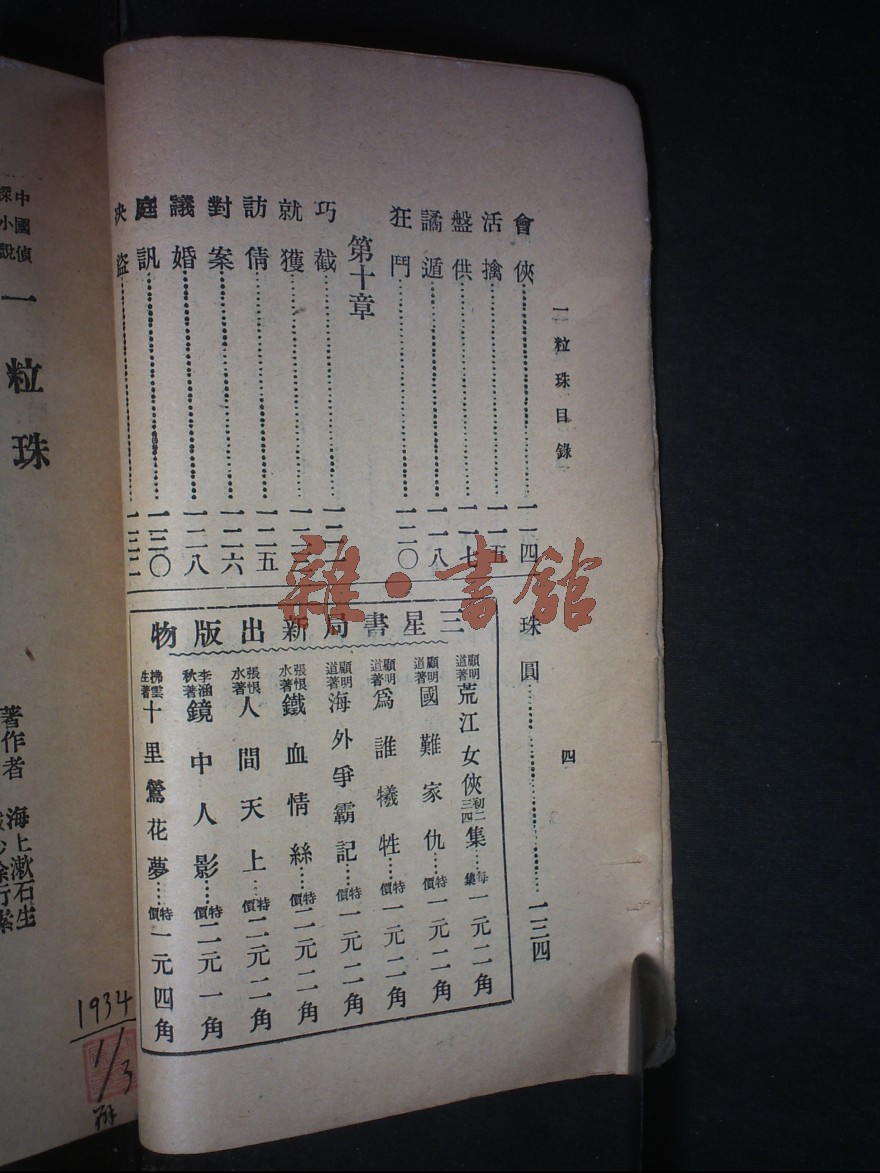 一粒珠目錄
四
會俠……一一四
活擒……一一五
盤供……一一七
譎遁……一一八
狂鬥……一二〇
第十章
巧截
就獲
訪倩……一二五
對案……一二六
議婚……一二八
庭訊……一三〇
決盜……一三二
珠圓……一三四
三星書局新出版物
顧明道著 荒江女俠 初二三四集……每集一元二角
顧明道著 國難家仇……特價一元二角
顧明道著 爲誰犧牲……特價一元二角
顧明道著 海外爭霸記……特價一元二角
張恨水著 鐵血情絲……特價二元二角
張恨水著 人間天上……特價二元二角
李涵秋著 鏡中人影……特價二元一角
拂雲生著 十里鶯花夢……特價一元四角
中國偵探小說
一粒珠
著作者 海上漱石生
1934
1/3
雜·書館